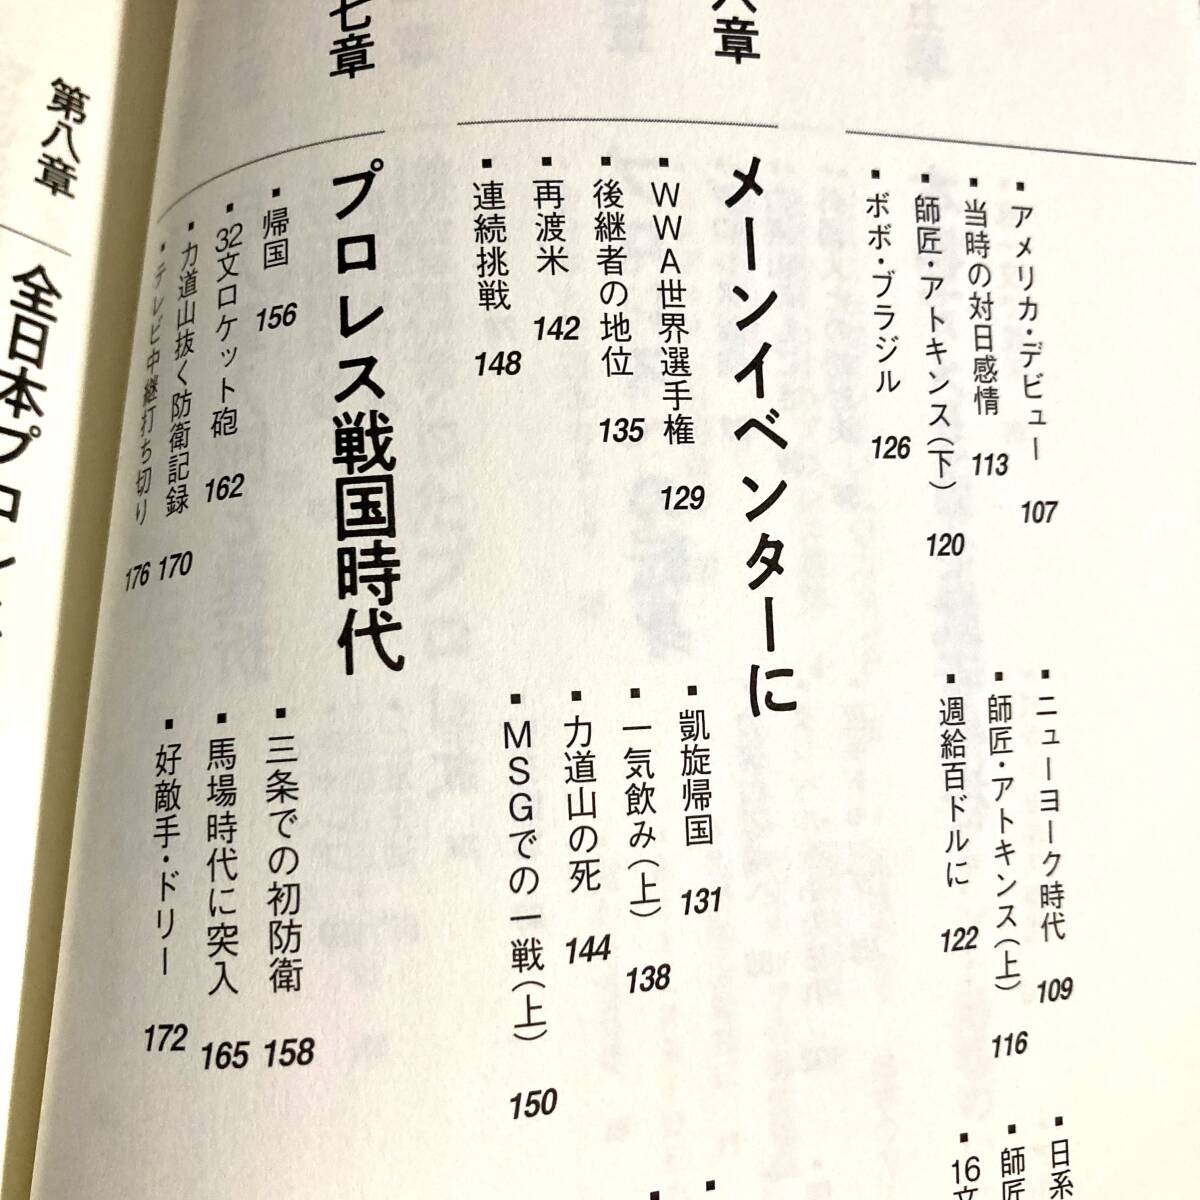 アメリカ・デビュー 107
ニューヨーク時代 109
日系
当時の対日感情 113
師匠・アトキンス(上) 116
師匠
師匠・アトキンス(下) 120
週給百ドルに 122
16文
ボボ・ブラジル 126
八章
メーンイベンターに
WWA世界選手権 129
凱旋帰国 131
後継者の地位 135
一気飲み(上) 138
再渡米 142
力道山の死 144
連続挑戦 148
MSGでの一戦(上) 150
七章
プロレス戦国時代
帰国 156
三条での初防衛 158
32文ロケット砲 162
馬場時代に突入 165
力道山抜く防衛記録 170
好敵手・ドリー 172
テレビ中継打ち切り 176
第八章
全日本プロレ